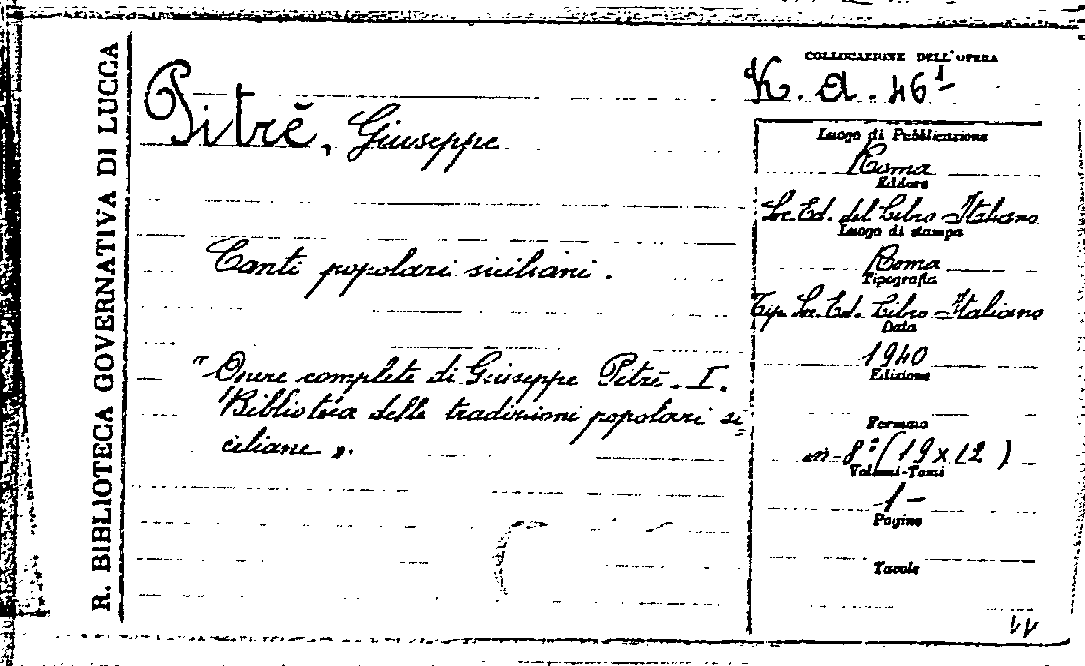 R. BIBLIOTECA GOVERNATIVA DI LUCCA
Pitrè, Giuseppe
Canti popolari siciliani.
"Opere complete di Giuseppe Pitrè. I.
Biblioteca delle tradizioni popolari si=
ciliane".
COLLOCAZIONE DELL'OPERA
K. d. 46¹-
Luogo di Pubblicazione
Roma
Editore
Soc. Ed. del Libro Italiano
Luogo di stampa
Roma
Tipografia
Tip. Soc. Ed. Libro Italiano
Data
1940
Edizione
Formato
in-8° (19x12)
Volumi-Tomi
1-
Pagine
Tavole